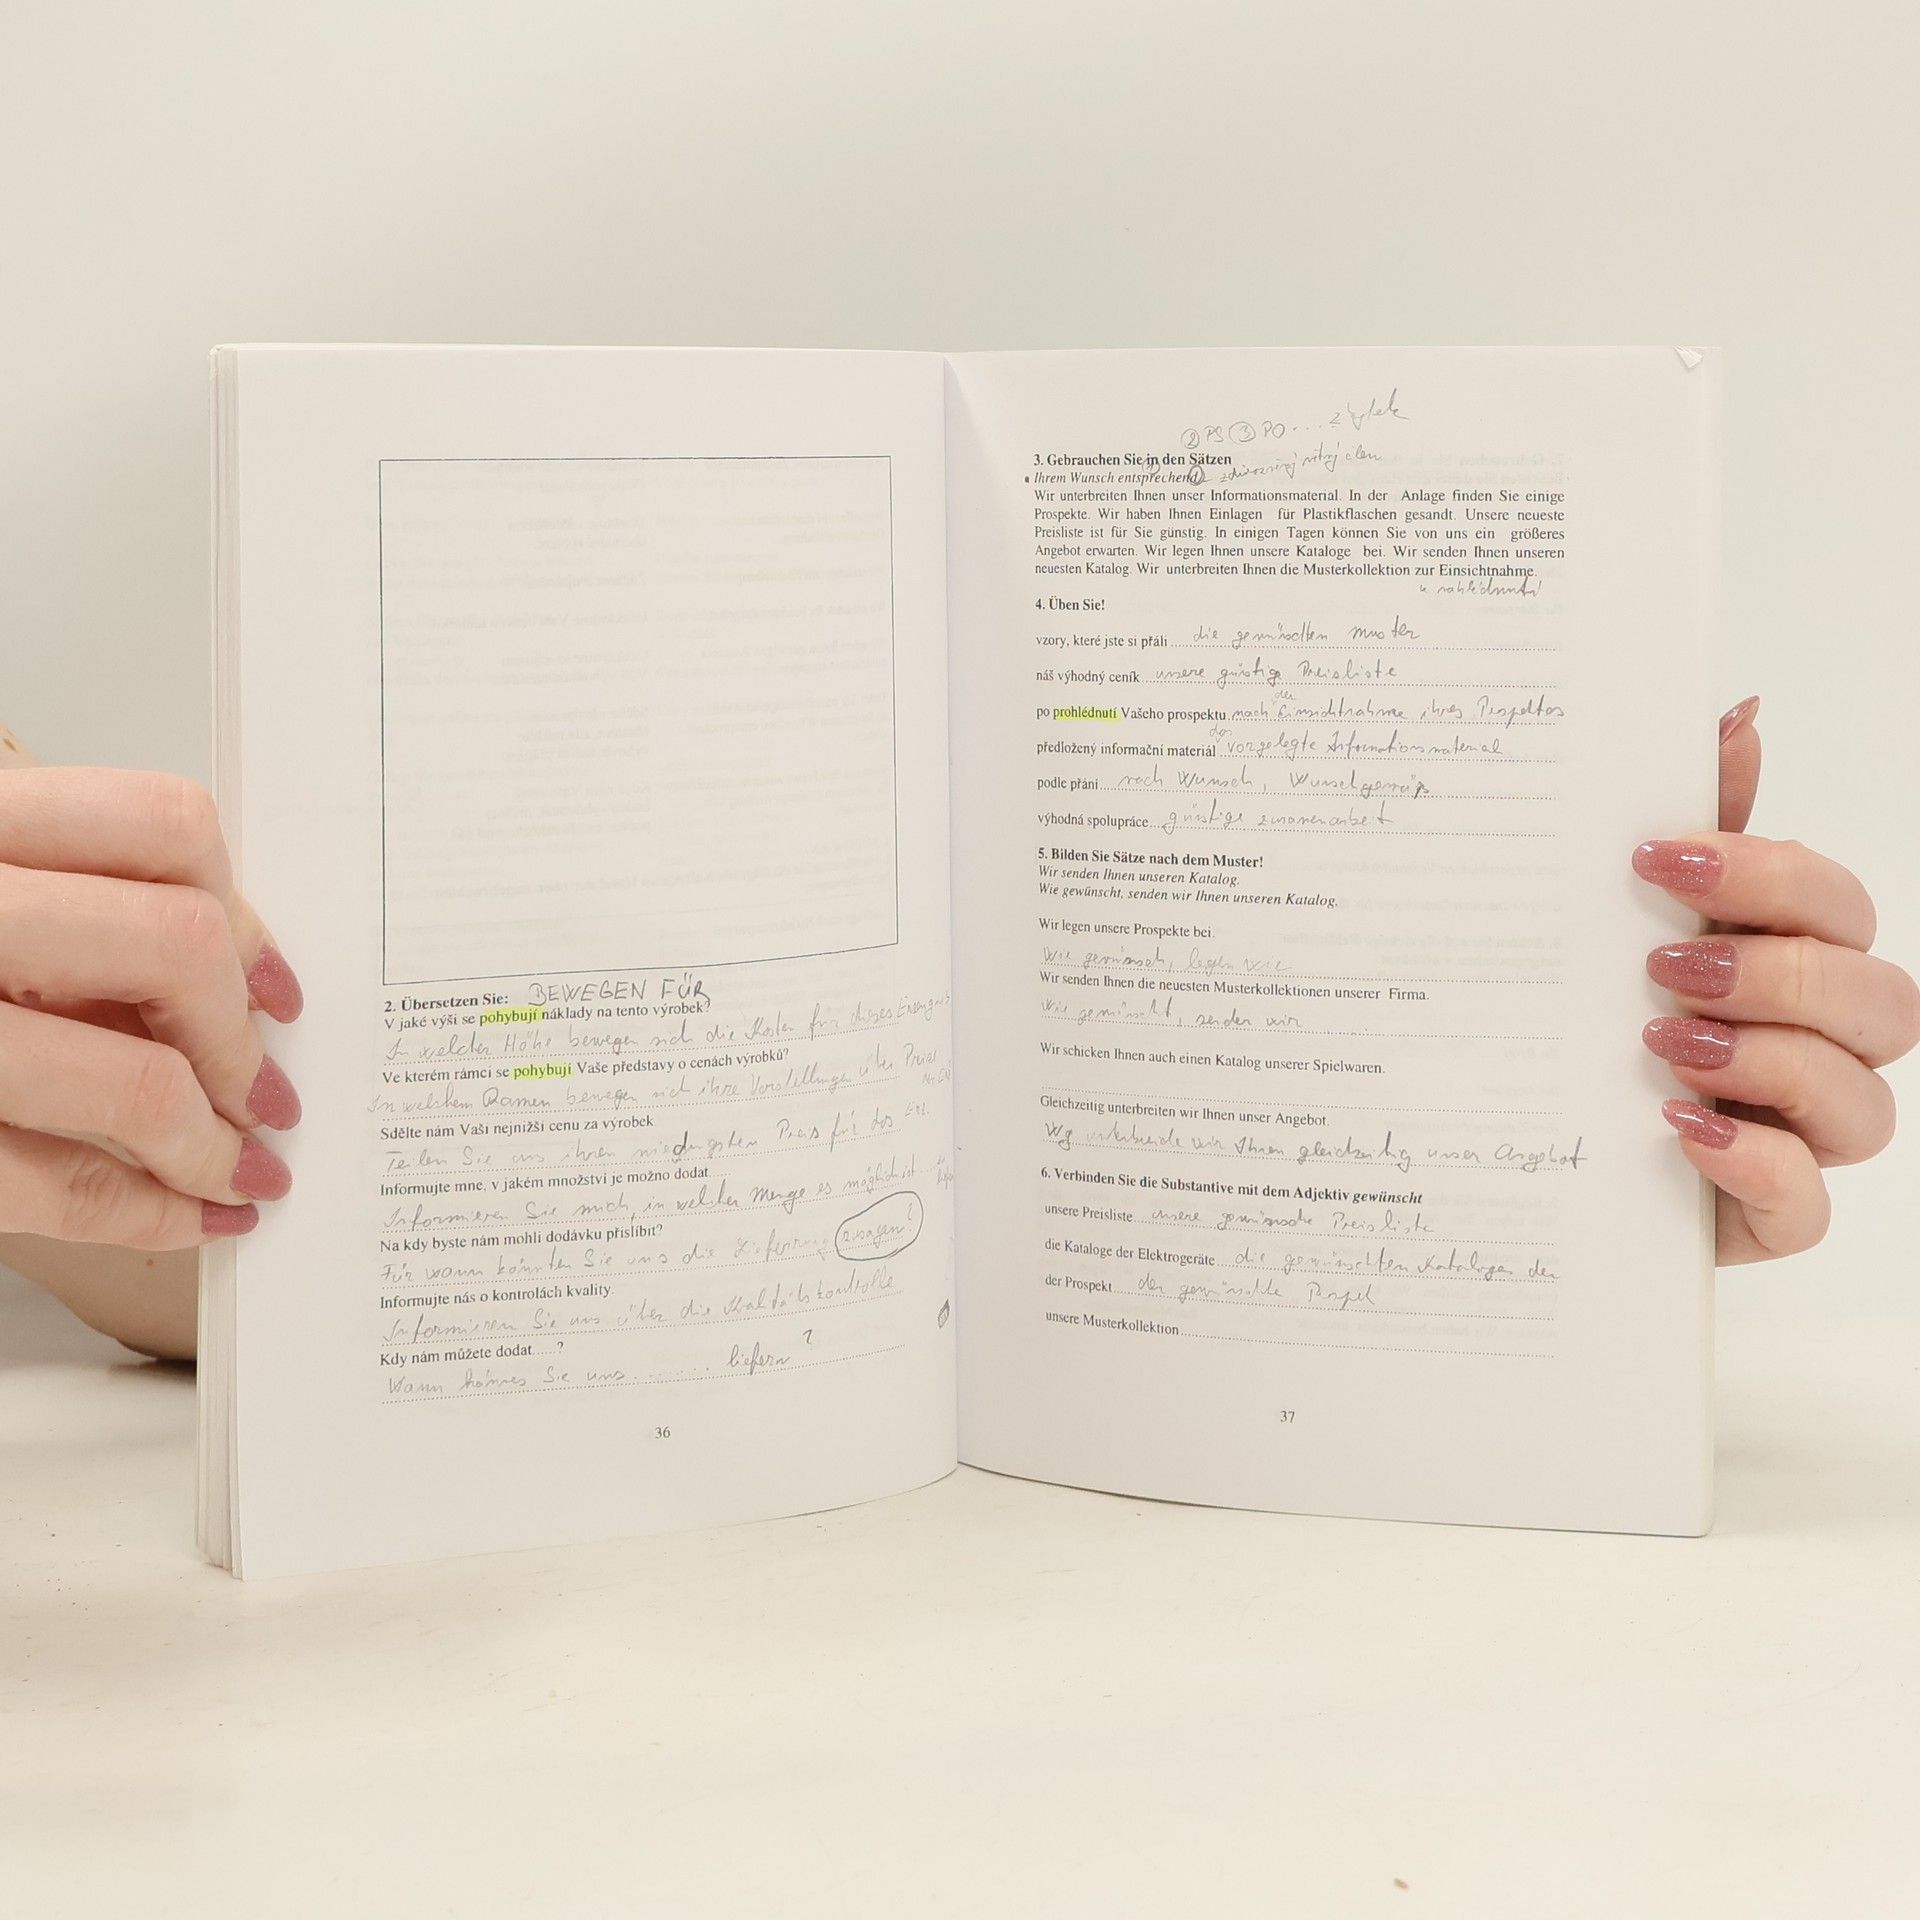 2. Übersetzen Sie: BEWEGEN FÜR
V jaké výši se pohybují náklady na tento výrobek?
In welcher Höhe bewegen sich die Kosten für dieses Erzeugnis
Ve kterém rámci se pohybují Vaše představy o cenách výrobků?
In welchem Ramen bewegen sich ihre Vorstellungen über Preise
Sdělte nám Vaši nejnižší cenu za výrobek
Teilen Sie uns ihren niedrigsten Preis für das Erz.
Informujte mne, v jakém množství je možno dodat.....
Informieren Sie mich, in welcher Menge es möglich ist ...
Na kdy byste nám mohli dodávku přislíbit?
Für wann könnten Sie uns die Lieferung zusagen?
Informujte nás o kontrolách kvality.
Informieren Sie uns über die Qualitätskontrolle
Kdy nám můžete dodat.....?
Wann können Sie uns ........ liefern?
36
② PS ③ PO ... zbytek
3. Gebrauchen Sie in den Sätzen
Ihrem Wunsch entsprechend ① větný člen
Wir unterbreiten Ihnen unser Informationsmaterial. In der Anlage finden Sie einige
Prospekte. Wir haben Ihnen Einlagen für Plastikflaschen gesandt. Unsere neueste
Preisliste ist für Sie günstig. In einigen Tagen können Sie von uns ein größeres
Angebot erwarten. Wir legen Ihnen unsere Kataloge bei. Wir senden Ihnen unseren
neuesten Katalog. Wir unterbreiten Ihnen die Musterkollektion zur Einsichtnahme.
k nahlédnutí
4. Üben Sie!
vzory, které jste si přáli die gewünschten Muster
náš výhodný ceník unsere günstige Preisliste
der
po prohlédnutí Vašeho prospektu nach Einsichtnahme ihres Prospektes
das
předložený informační materiál vorgelegte Informationsmaterial
podle přání nach Wunsch, Wunschgemäß
výhodná spolupráce günstige zusamenarbeit
5. Bilden Sie Sätze nach dem Muster!
Wir senden Ihnen unseren Katalog.
Wie gewünscht, senden wir Ihnen unseren Katalog.
Wir legen unsere Prospekte bei.
Wie gewünsch, legen wir
Wir senden Ihnen die neuesten Musterkollektionen unserer Firma.
Wie gewünscht, senden wir
Wir schicken Ihnen auch einen Katalog unserer Spielwaren.
Gleichzeitig unterbreiten wir Ihnen unser Angebot.
Wg wir Ihnen gleichzeitig unser Angebot
6. Verbinden Sie die Substantive mit dem Adjektiv gewünscht
unsere Preisliste unsere gewünsche Preisliste
die Kataloge der Elektrogeräte die gewünschten Kataloge der
der Prospekt der gewünschte
unsere Musterkollektion
37